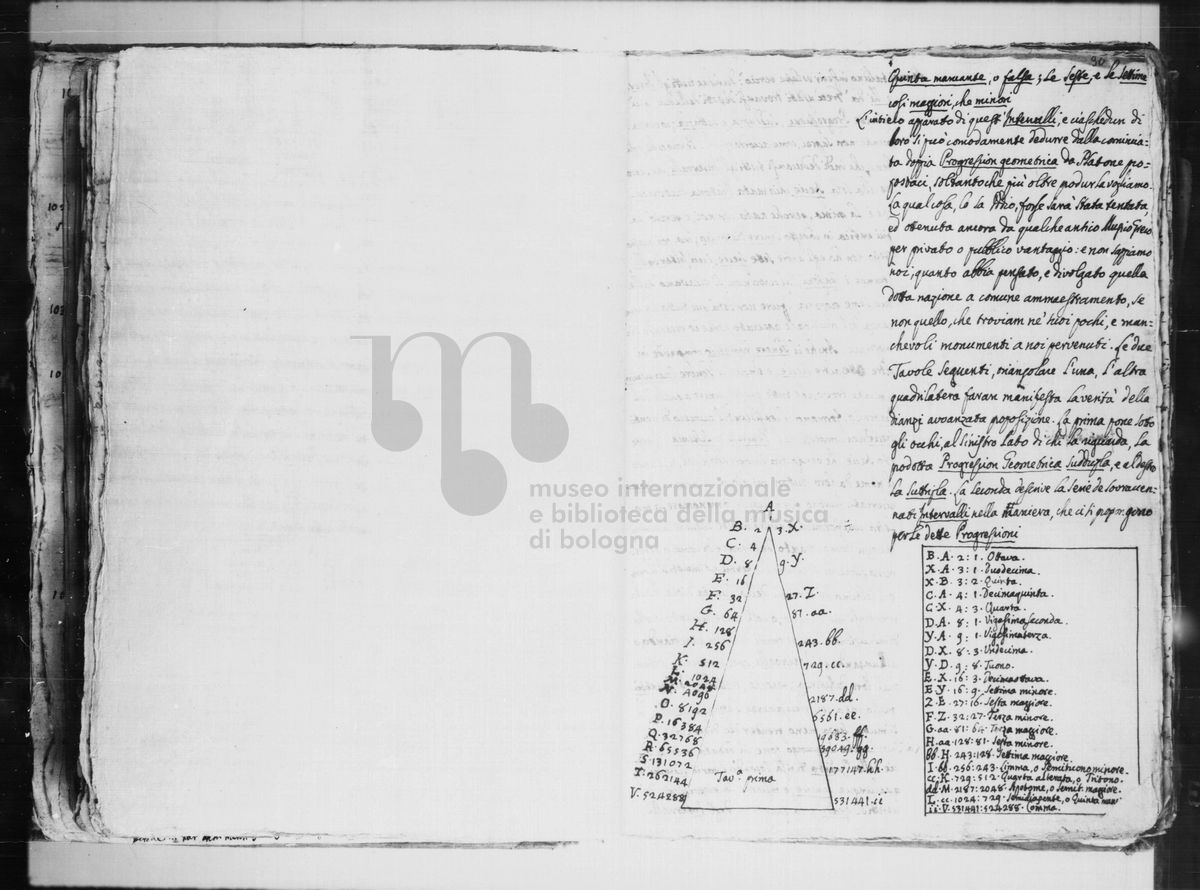 90
Quinta mancante, o falsa; Le Seste, e le Settime
così maggiori, che minori
L'intielo apparato di quest' Intervalli, e ciaschedun di
loro si può comodamente dedurre dalla cominciata
doppia Progression geometrica da Platone po-
postaci, soltantoche più oltre produr la vogliamo.
La qual cosa, forse sarà stata tentata,
ed ottenuta ancora da qualche antico Musico Greco
per privato o pubblico vantaggio: e non sappiamo
noi, quanto abbia pensato, e divolgato quella
dotta nazione a comune ammaestramento, se
non quello, che troviam ne' pochi, e man-
chevoli monumenti a noi pervenuti. Le due
Tavole seguenti, triangolare l'una, l'altra
quadrilatera faran manifesta la verità della
dianzi avvanzata proposizione. La prima pone sotto
gli occhi, al sinistro lato di chi la riguarda, la
prodotta Progression Geometrica Suddupla, e al destro
la Suttripla. La seconda descrive la serie de sovraccen-
nati Intervalli nella maniera, che ci si propongono
per le dette Progressioni
A
B. 2 3. X.
C. 4
D. 8 9. Y.
E. 16
F. 32 27. Z.
G. 64 81. aa.
H. 128
I. 256 243. bb.
K. 512 729. cc.
L. 1024
M. 2048
N. 4096 2187. dd.
O. 8192 6561. ee.
P. 16384
Q. 32768 19683. ff
R. 65536 59049. gg.
S. 131072 177147. hh.
T. 262144
V. 524288 531441. ii
Tav.a prima
B. A. 2: 1. Ottava.
X. A. 3: 1. Duodecima.
X. B. 3: 2. Quinta.
C. A. 4: 1. Decimaquinta.
C. X. 4: 3. Quarta.
D. A. 8: 1. Vigesimaseconda.
Y. A. 9: 1. Vigesimaterza.
D. X. 8: 3. Undecima.
Y. D. 9: 8. Tuono.
E. X. 16: 3. Decimaottava.
E. Y. 16: 9. Settima minore.
Z. E. 27: 16. Sesta maggiore.
F. Z. 32: 27. Terza minore.
G. aa. 81: 64. Terza maggiore.
H. aa. 128: 81. Sesta minore.
bb. H. 243: 128. Settima maggiore.
I. bb. 256: 243. Limma, o Semituono minore.
cc. K. 729: 512. Quarta alterata, o Tritono.
dd. M. 2187: 2048. Apotome, o Semit. maggiore.
L. cc. 1024: 729. Semidiapente, o Quinta man
ii. V. 531441: 524288. Comma.
museo internazionale
e biblioteca della musica
di bologna